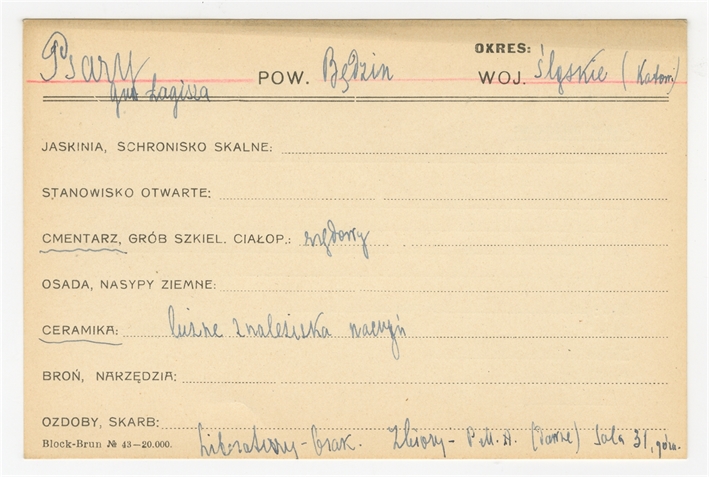 OKRES:
Psary POW. Będzin WOJ. Śląskie (Katow)
gm. Łagisza
JASKINIA, SCHRONISKO SKALNE:
STANOWISKO OTWARTE:
CMENTARZ, GRÓB SZKIEL. CIAŁOP.: rzędowy
OSADA, NASYPY ZIEMNE:
CERAMIKA: luźne znaleziska naczyń
BROŃ, NARZĘDZIA:
OZDOBY, SKARB:
Literatury - brak. Zbiory - P.M.A. (dawne) Sala 31, górn.
Block-Brun № 43-20.000.